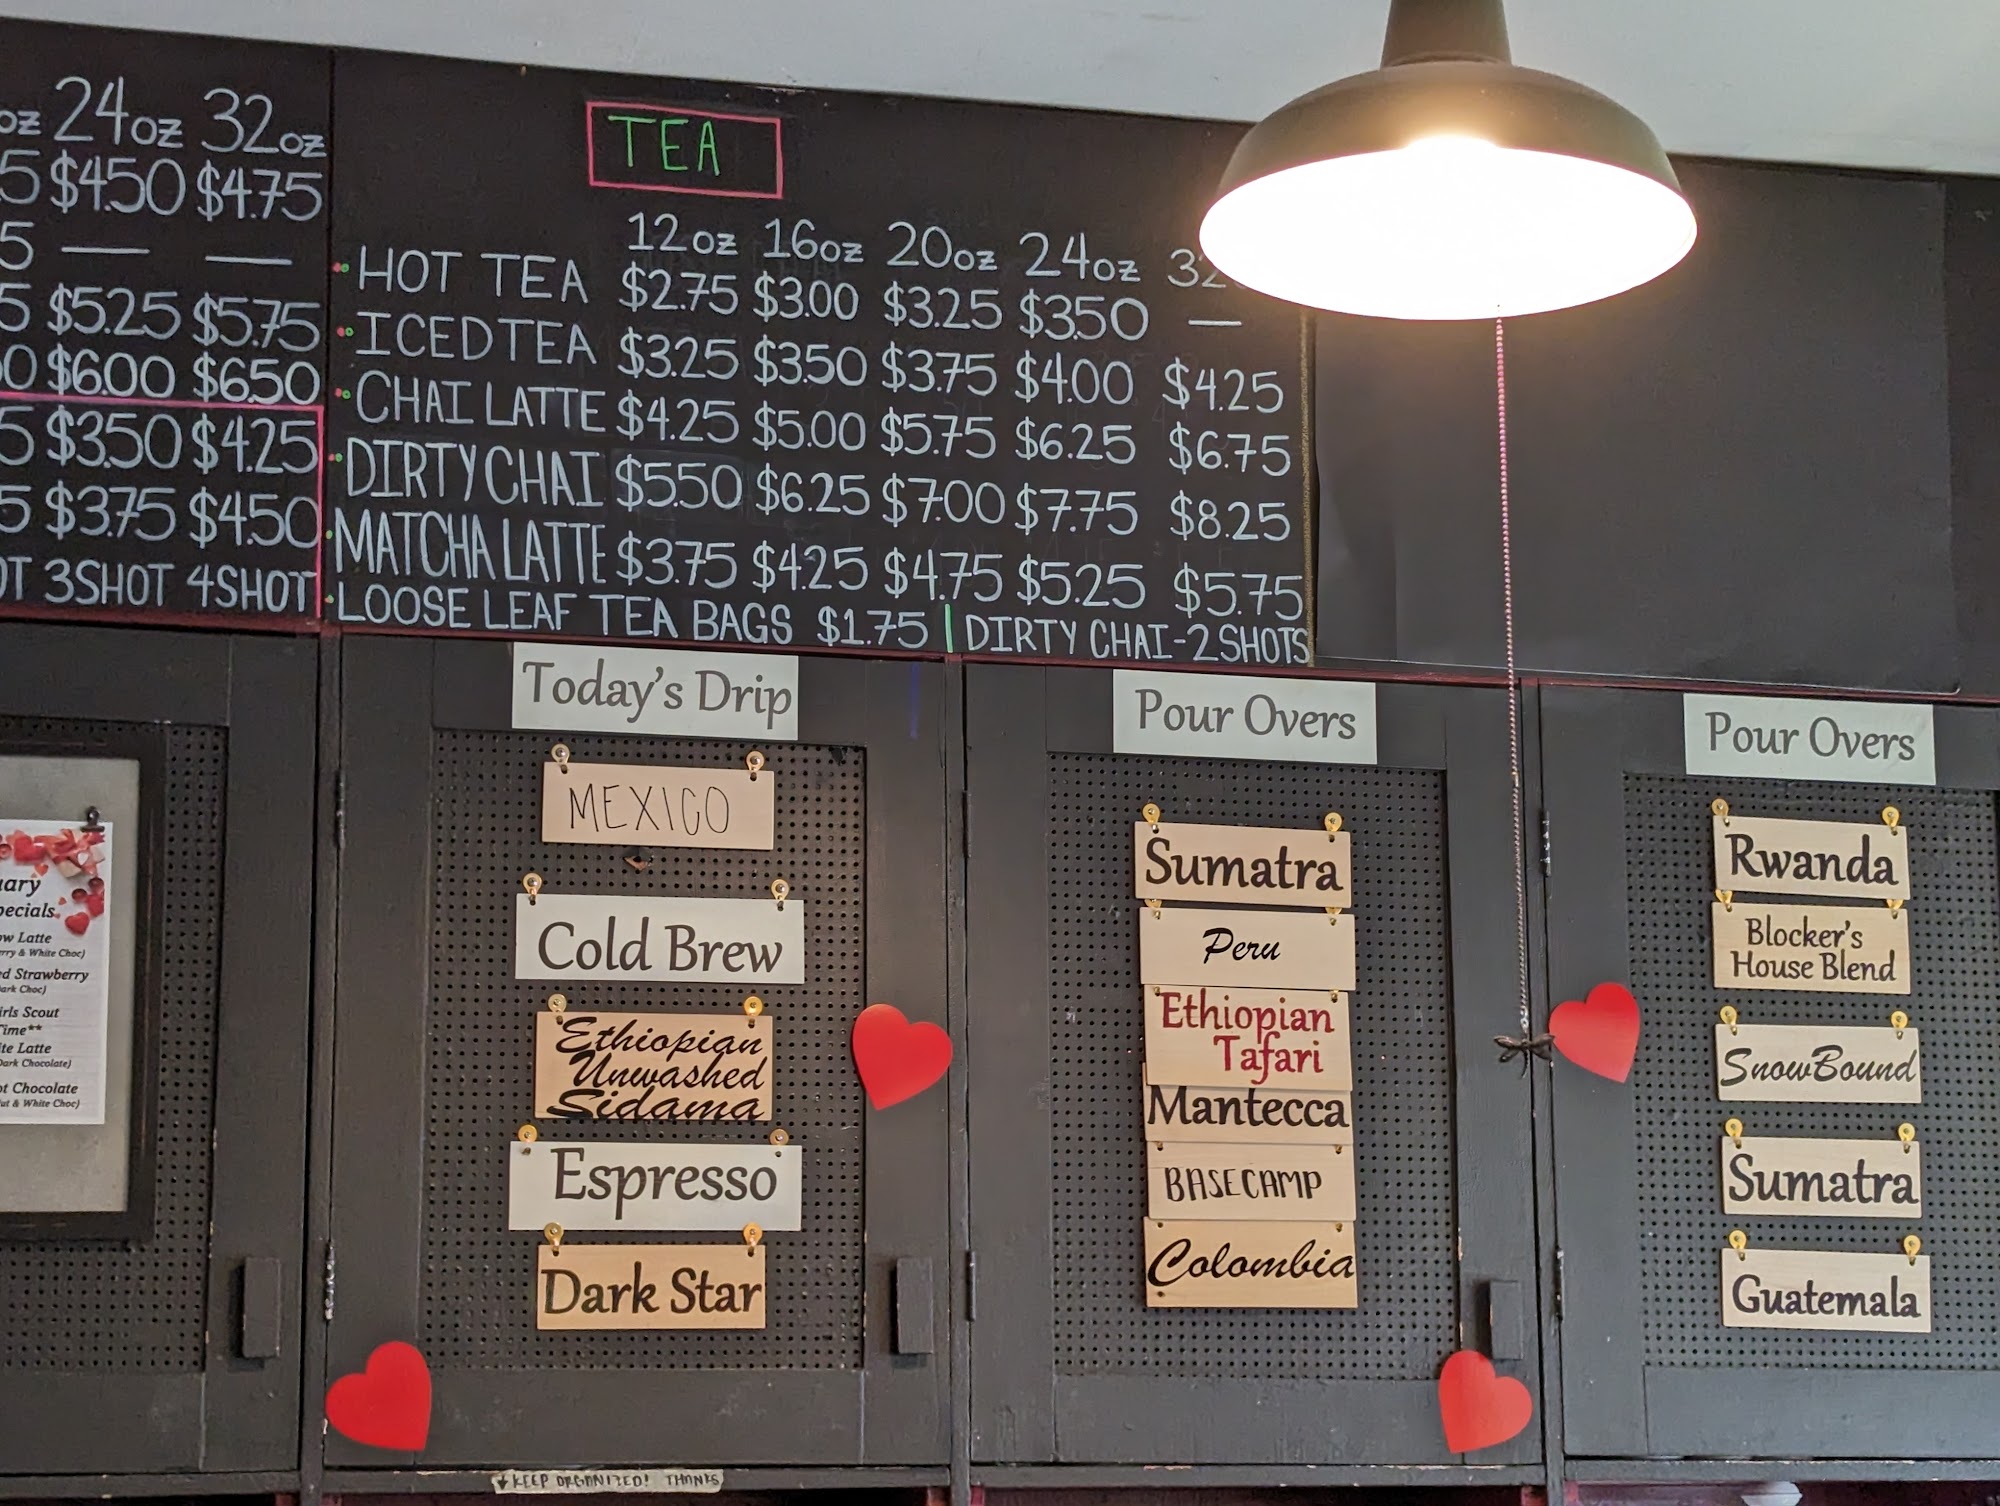 24oz 32oz
$4.50 $4.75
5 — —
5 $5.25 $5.75
0 $6.00 $6.50
5 $3.50 $4.25
5 $3.75 $4.50
3SHOT 4SHOT
TEA
12oz 16oz 20oz 24oz
HOT TEA $2.75 $3.00 $3.25 $3.50 —
ICED TEA $3.25 $3.50 $3.75 $4.00 $4.25
CHAI LATTE $4.25 $5.00 $5.75 $6.25 $6.75
DIRTY CHAI $5.50 $6.25 $7.00 $7.75 $8.25
MATCHA LATTE $3.75 $4.25 $4.75 $5.25 $5.75
LOOSE LEAF TEA BAGS $1.75 | DIRTY CHAI-2 SHOTS
Latte
& White Choc)
Strawberry
Choc)
Scout
Time**
Latte
Dark Chocolate)
Chocolate
& White Choc)
Today's Drip
MEXICO
Cold Brew
Ethiopian
Unwashed
Sidama
Espresso
Dark Star
KEEP ORGANIZED! THANKS
Pour Overs
Sumatra
Peru
Ethiopian
Tafari
Mantecca
BASECAMP
Colombia
Pour Overs
Rwanda
Blocker's
House Blend
SnowBound
Sumatra
Guatemala